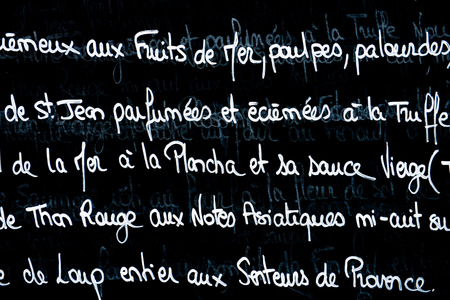 crémeux aux Fruits de Mer, poulpes, palourdes,
de St. Jean parfumées et écrémées à la Truffe
de la Mer à la Plancha et sa sauce Vierge (
de Thon Rouge aux Notes Asiatiques mi-cuit su
de Loup entier aux Senteurs de Provence.